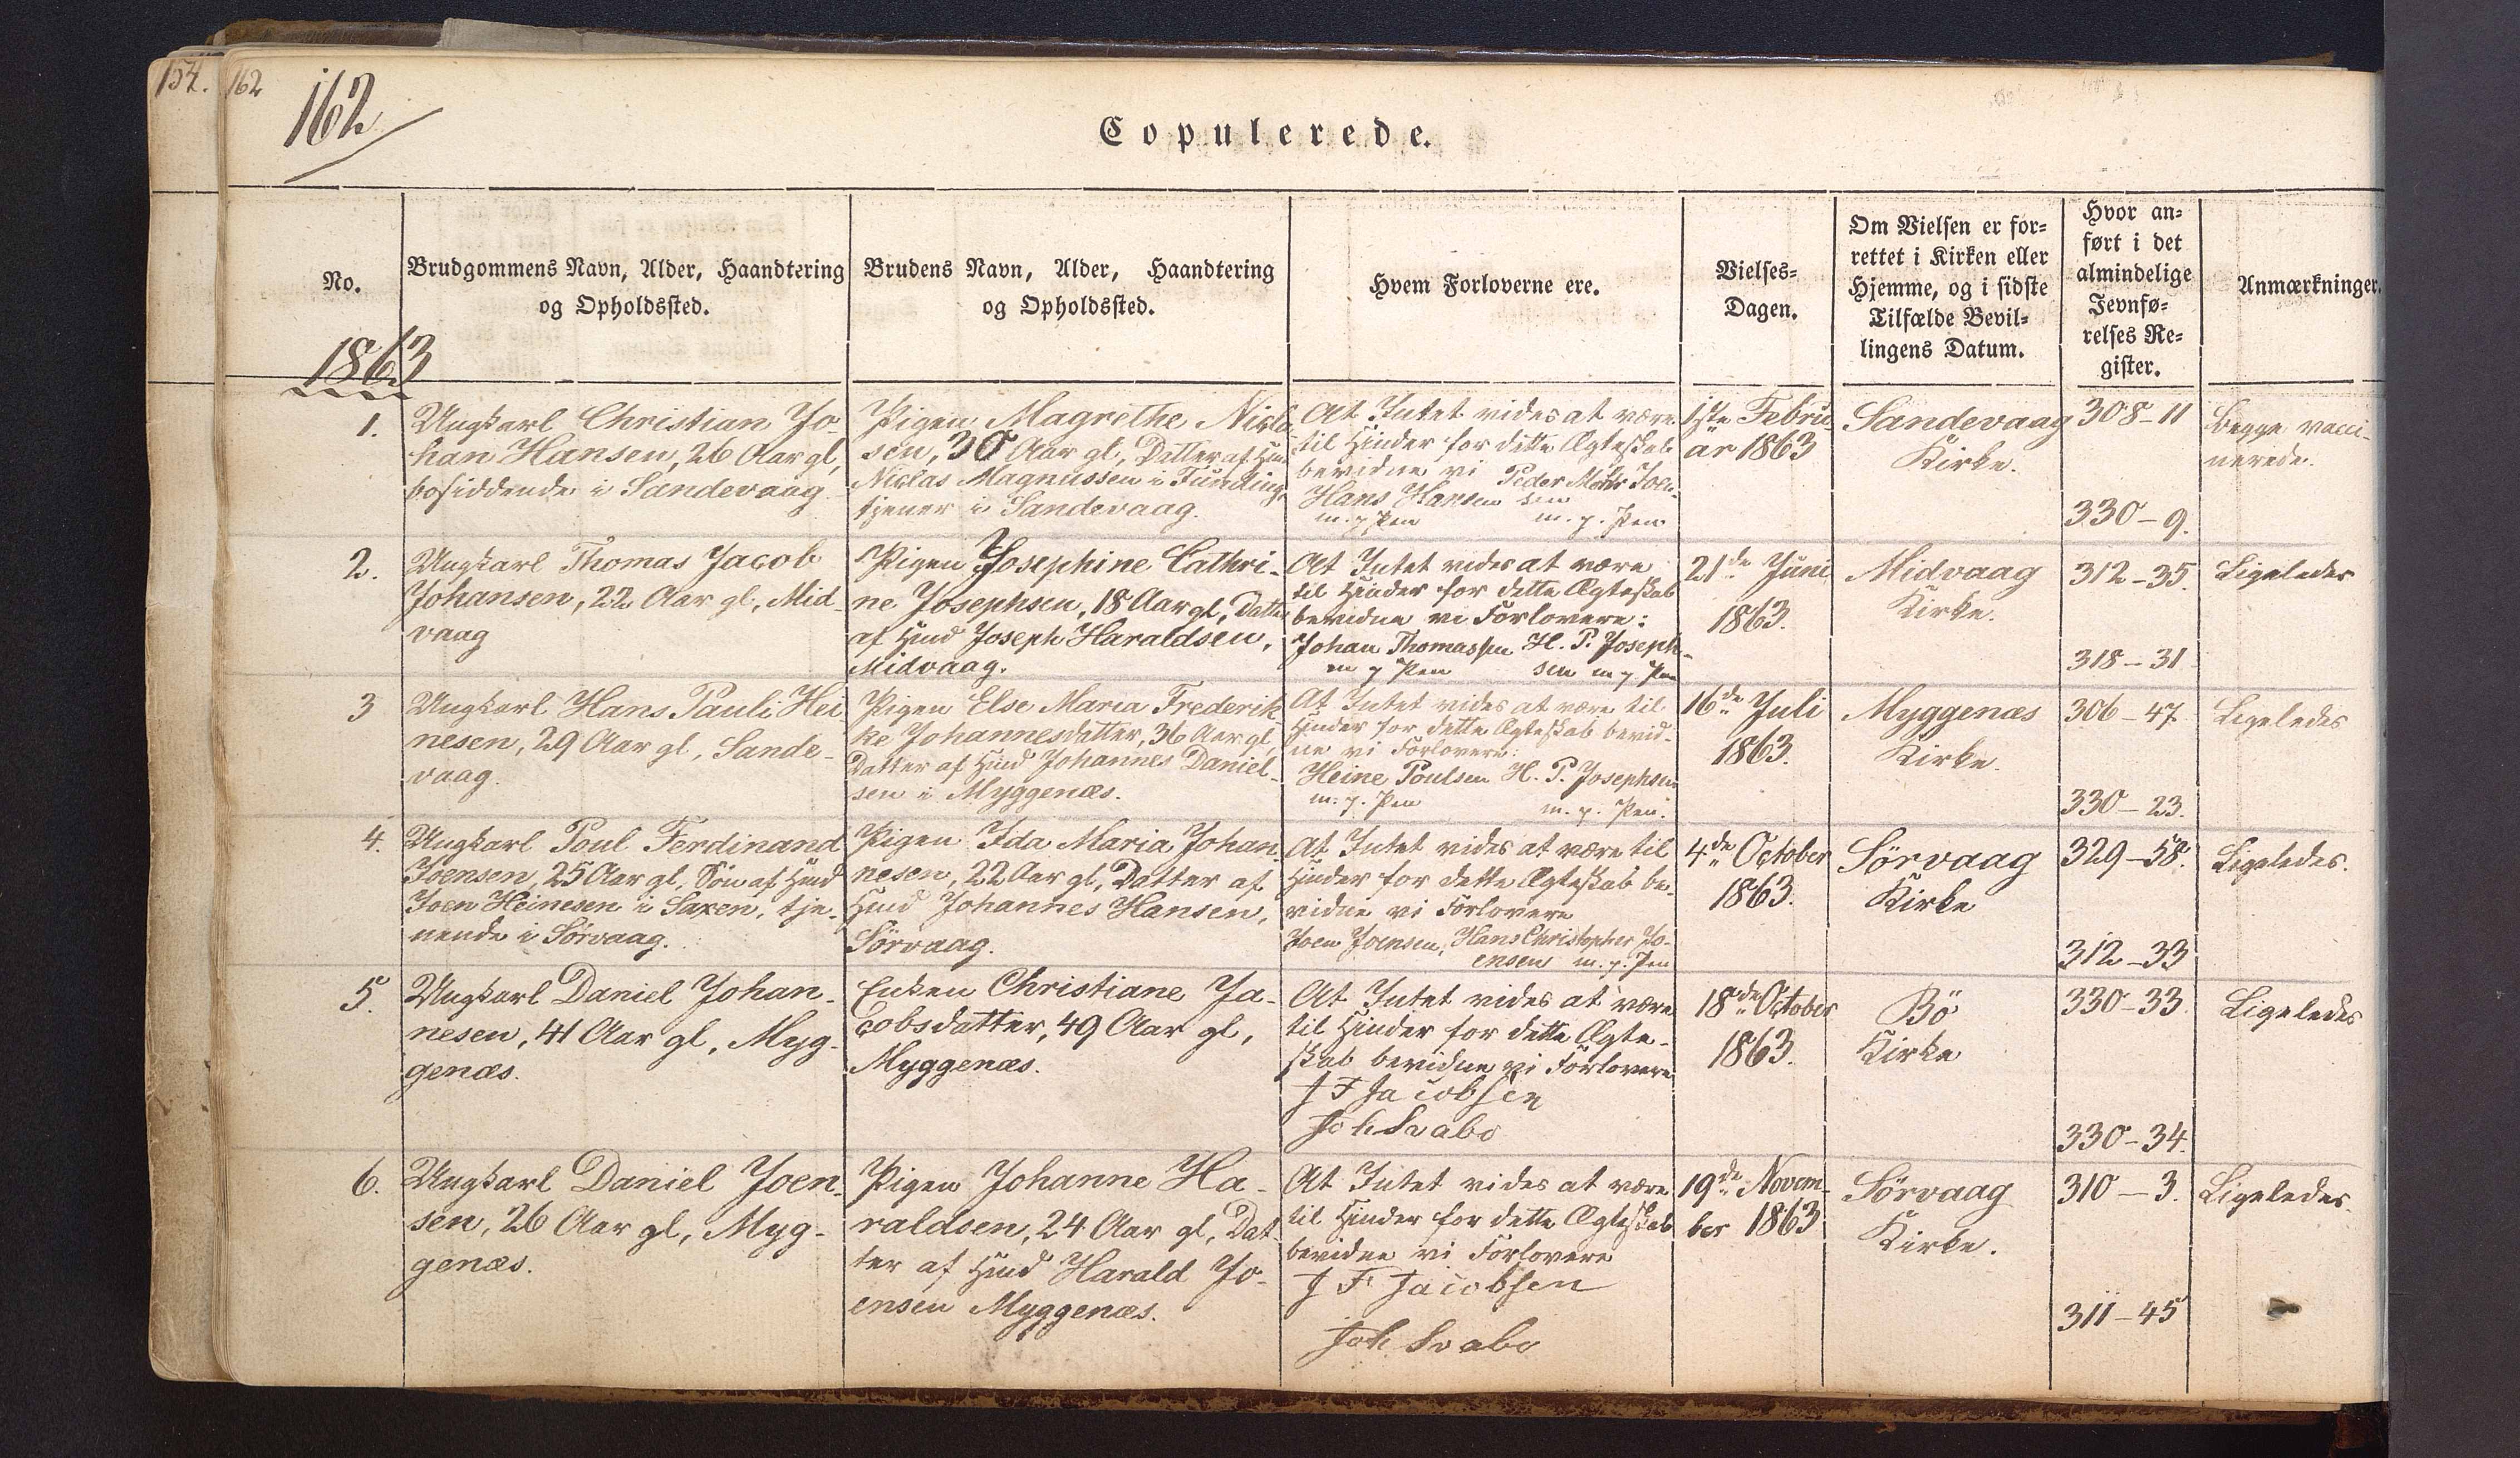 154.
162
162
Copulerede.
No.
Brudgommens Navn, Alder, Haandtering
og Opholdssted.
Brudens Navn, Alder, Haandtering
og Opholdssted.
Hvem Forloverne ere.
Vielses-
Dagen.
Om Vielsen er for-
rettet i Kirken eller
Hjemme, og i sidste
Tilfælde Bevil-
lingens Datum.
Hvor an-
ført i det
almindelige
Jevnfø-
relses Re-
gister.
Anmærkninger.
1863
1.
Ungkarl Christian Jo-
han Hansen, 26 Aar gl,
bosiddende i Sandevaag.
Pigen Magrethe Nicla-
sen, 30 Aar gl, Datter af Huusmd
Niclas Magnussen i Funding,
tjener i Sandevaag.
At Intet vides at være
til Hinder for dette Ægteskab
bevidne vi Peder Joen-
Hans Hansen sen
m. p. Pen m. p. Pen
1ste Febru-
ar 1863
Sandevaag
Kirke.
308-11
330-9.
Begge vacci-
nerede.
2.
Ungkarl Thomas Jacob
Johansen, 22 Aar gl, Mid-
vaag
Pigen Josephine Cathri-
ne Josephsen, 18 Aar gl, Datter
af Hmd Joseph Haraldsen,
Midvaag.
At Intet vides at være
til Hinder for dette Ægteskab
bevidne vi Forlovere:
Johan Thomassen H. P. Joseph-
m p Pen sen m p Pen
21de Juni
1863.
Midvaag
Kirke.
312-35.
318-31
Ligeledes
3
Ungkarl Hans Pauli Hei-
nesen, 29 Aar gl, Sande-
vaag.
Pigen Else Maria Frederik-
ke Johannesdatter, 36 Aar gl,
Datter af Hmd Johannes Daniel-
sen i Myggenæs.
At Intet vides at være til
Hinder for dette Ægteskab bevid-
ne vi Forlovere:
Heine Poulsen H. P. Josephsen
m. p. Pen m. p. Pen.
16de Juli
1863.
Myggenæs
Kirke.
306-47.
330-23.
Ligeledes
4.
Ungkarl Poul Ferdinand
Joensen, 25 Aar gl, Søn af Hmd
Joen Heinesen i Saxen, tje-
nende i Sørvaag.
Pigen Ida Maria Johan-
nesen, 22 Aar gl, Datter af
Hmd Johannes Hansen,
Sørvaag.
At Intet vides at være til
Hinder for dette Ægteskab be-
vidne vi Forlovere
Joen Joensen, Hans Christopher Jo-
ensen m. p. Pen
4de October
1863.
Sørvaag
Kirke
329-58.
312-33
Ligeledes.
5.
Ungkarl Daniel Johan-
nesen, 41 Aar gl, Myg-
genæs.
Enken Christiane Ja-
cobsdatter, 49 Aar gl,
Myggenæs.
At Intet vides at være
til Hinder for dette Ægte-
skab bevidne vi Forlovere
J F Jacobsen
Joh Svabo
18de October
1863.
Bö
Kirke
330-33.
330-34.
Ligeledes
6.
Ungkarl Daniel Joen-
sen, 26 Aar gl, Myg-
genæs.
Pigen Johanne Ha-
raldsen, 24 Aar gl, Dat-
ter af Hmd Harald Jo-
ensen Myggenæs.
At Intet vides at være
til Hinder for dette Ægteskab
bevidne vi Forlovere
J F Jacobsen
Joh Svabo
19de Novem-
ber 1863.
Sørvaag
Kirke.
310-3.
311-45
Ligeledes.